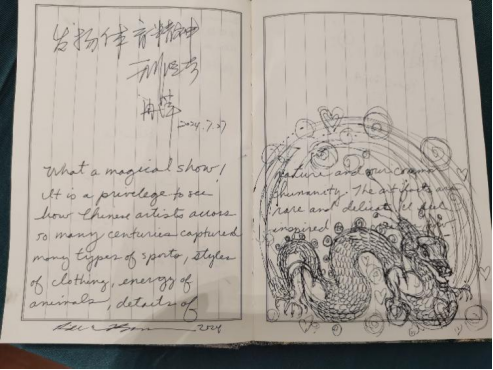 发扬体育精神
2024.7.27
What a magical show!
It is a privilege to see
how Chinese artists across
so many centuries captured
many types of sports, styles
of clothing, energy of
animals, details of
2024
nature and our common
humanity. The art
rare and delicate
inspired